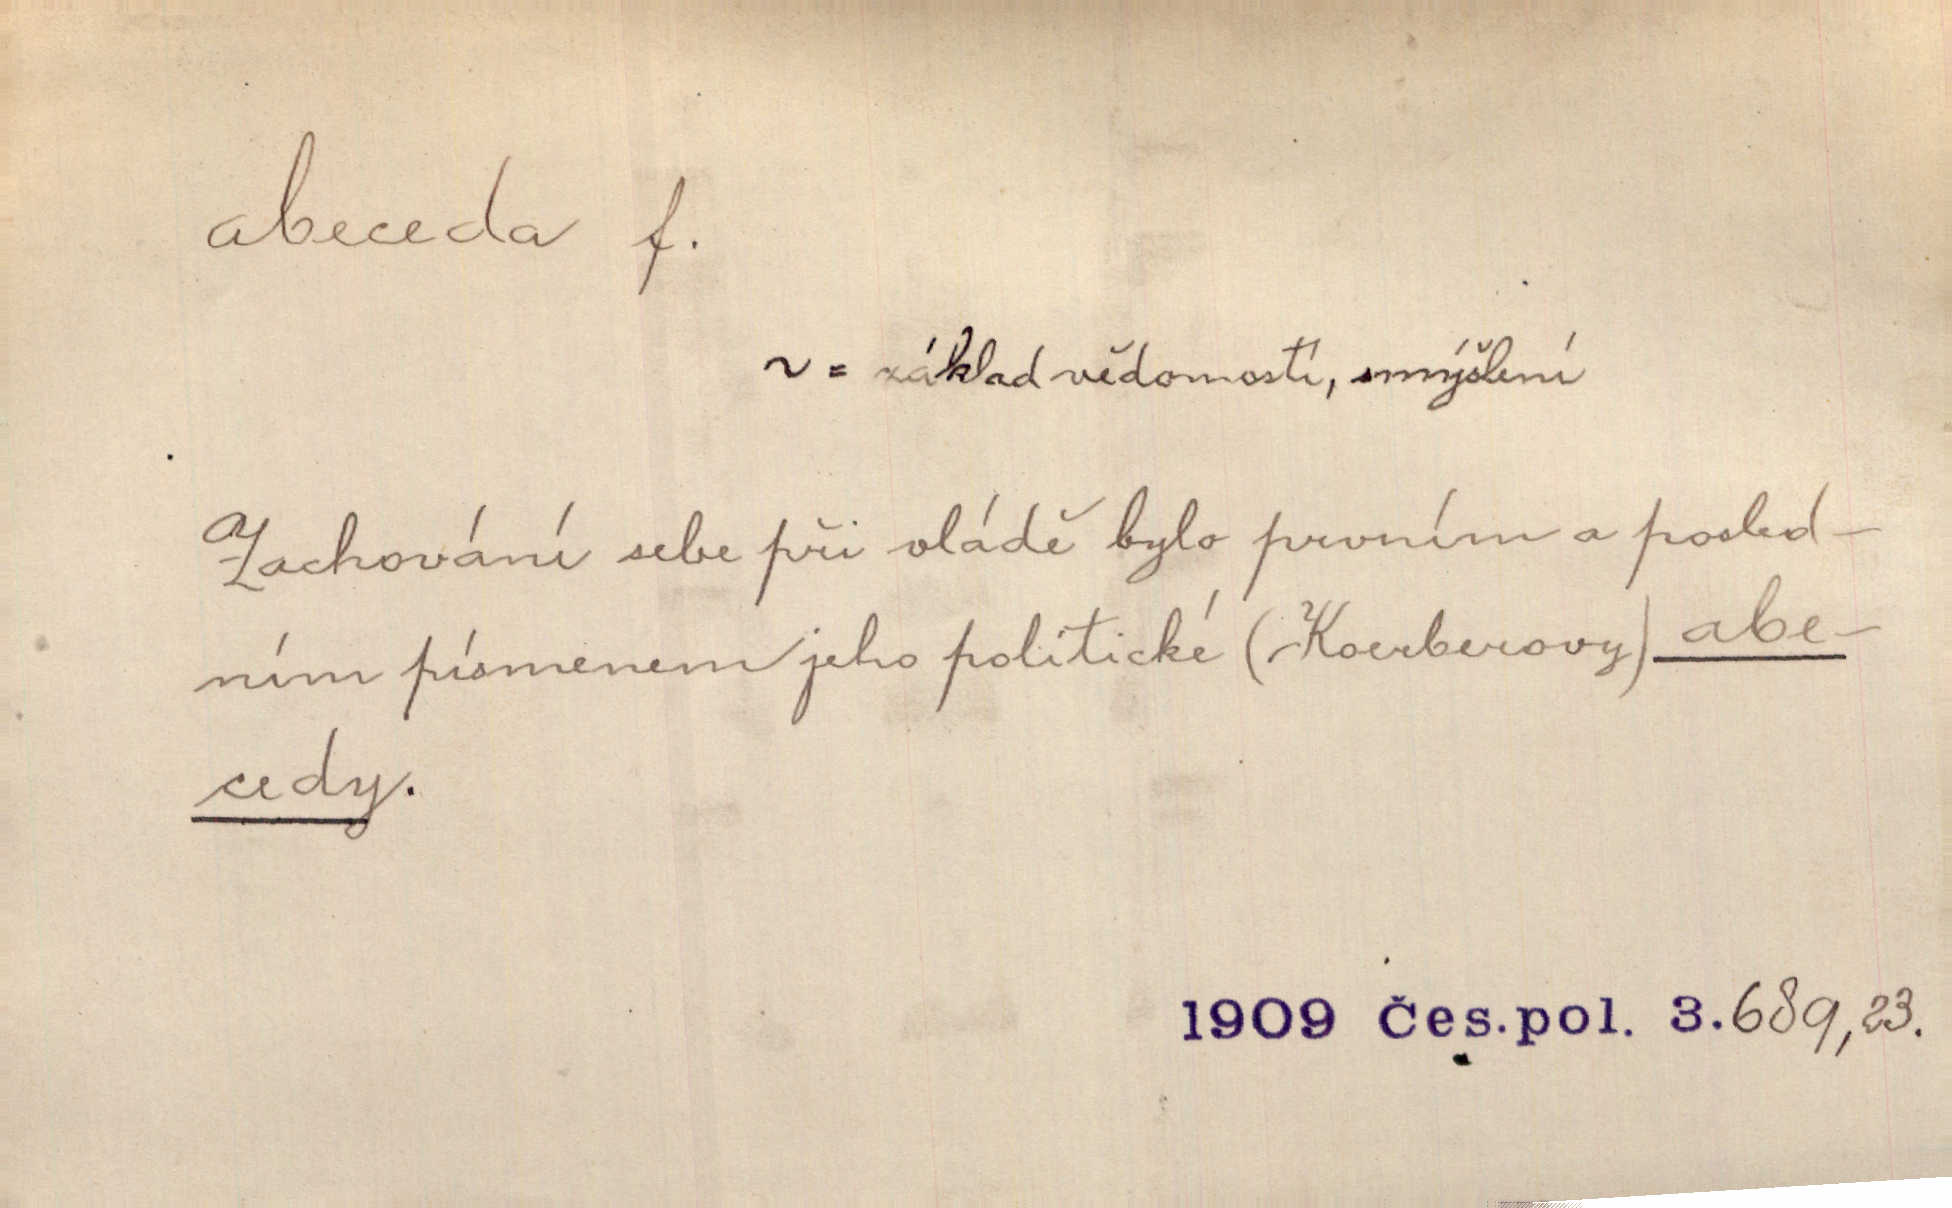 abeceda f.
~ = základ vědomostí, smýšlení
Zachování sebe při vládě bylo prvním a posled-
ním písmenem jeho politické (Koerberovy) abe-
cedy.
1909 Čes.pol. 3.689,23.